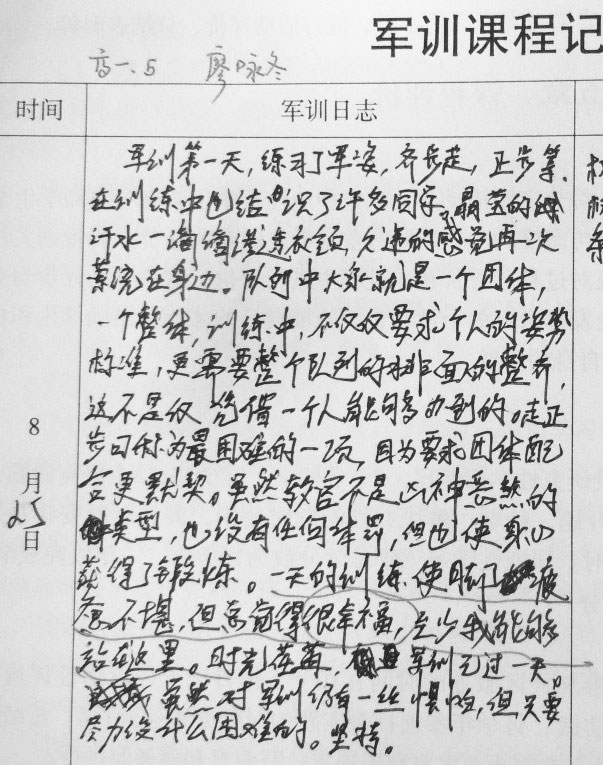 军训课程记
高一.5 廖咏冬
时间 军训日志
军训第一天，练习了军姿，齐步走，正步等．
在训练中也结识了许多同学，晶莹的
汗水一滴滴渗透衣领，久违的感觉再一次
萦绕在身边。队列中大家就是一个团体，
一个整体，训练中，不仅仅要求个人的姿势
标准，更需要整个队列的排面的整齐，
这不是仅凭借一个人能够办到的。走正
步可称为最困难的一项，因为要求团体配
合更默契。虽然教官不是凶神恶煞的
类型，也没有任何体罚，但也使身心
获得了锻炼。一天的训练使脚了疲
惫不堪，但总觉得很幸福，至少我能够
站在这里。时光荏苒，军训已过一天。
虽然对军训仍有一丝惧怕，但只要
尽力没什么困难的。坚持。
8
月
25
日